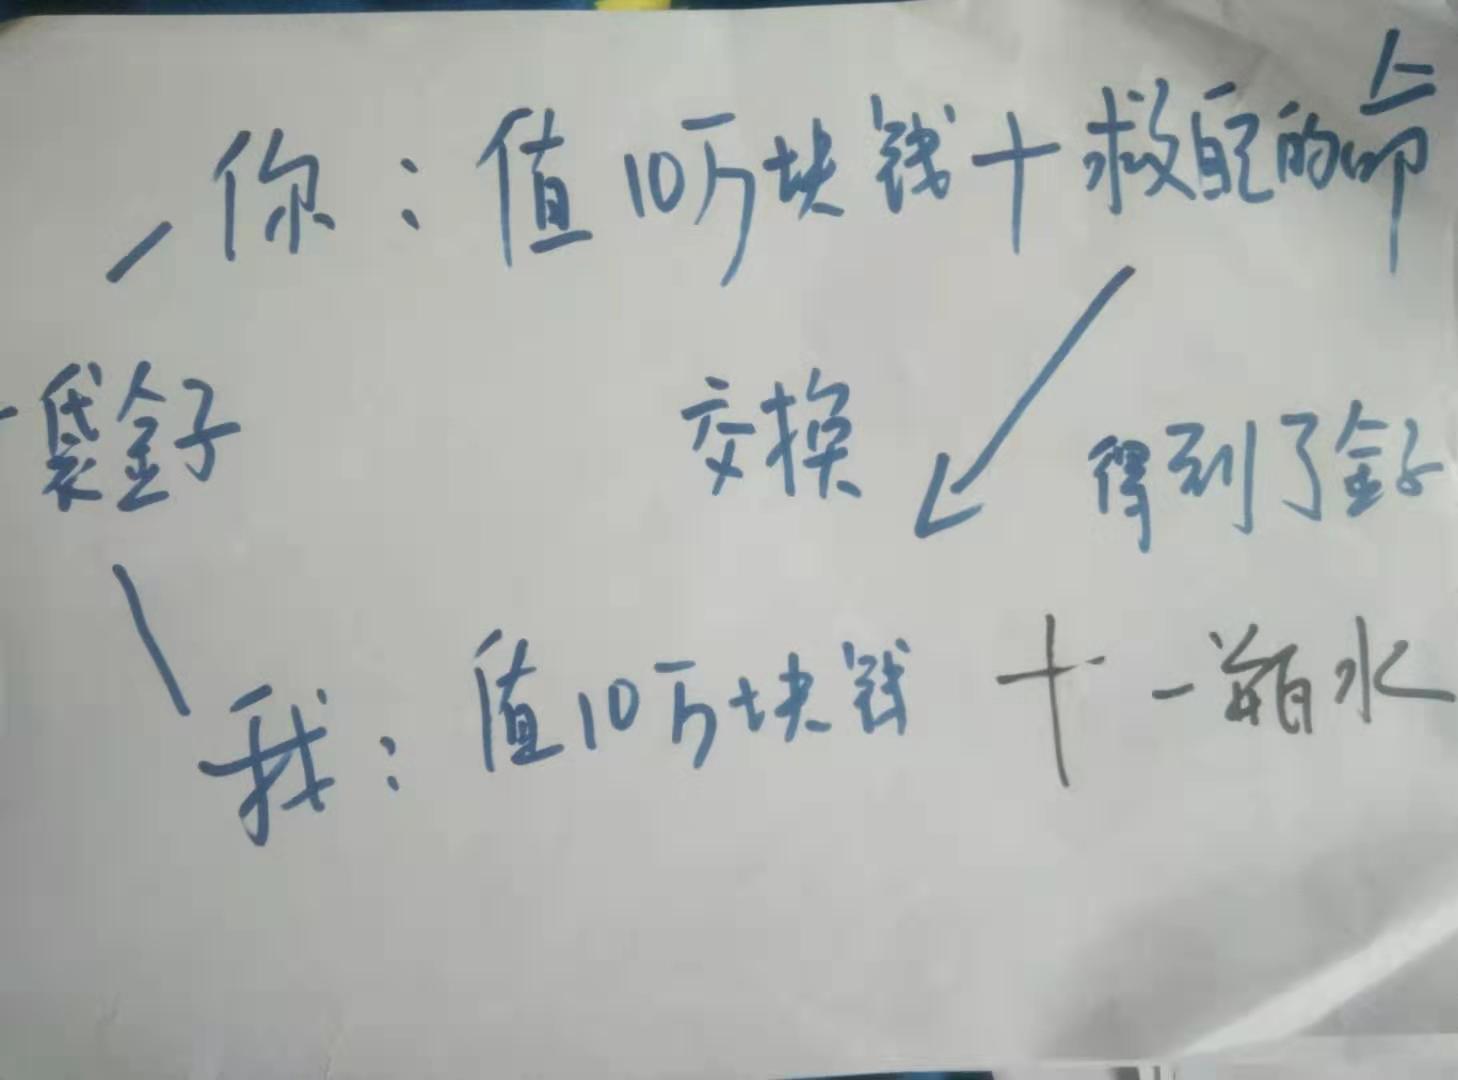 你：值10万块钱十救配的命
一袋金子
交换
得到了金子
我：值10万块钱 十 一瓶水